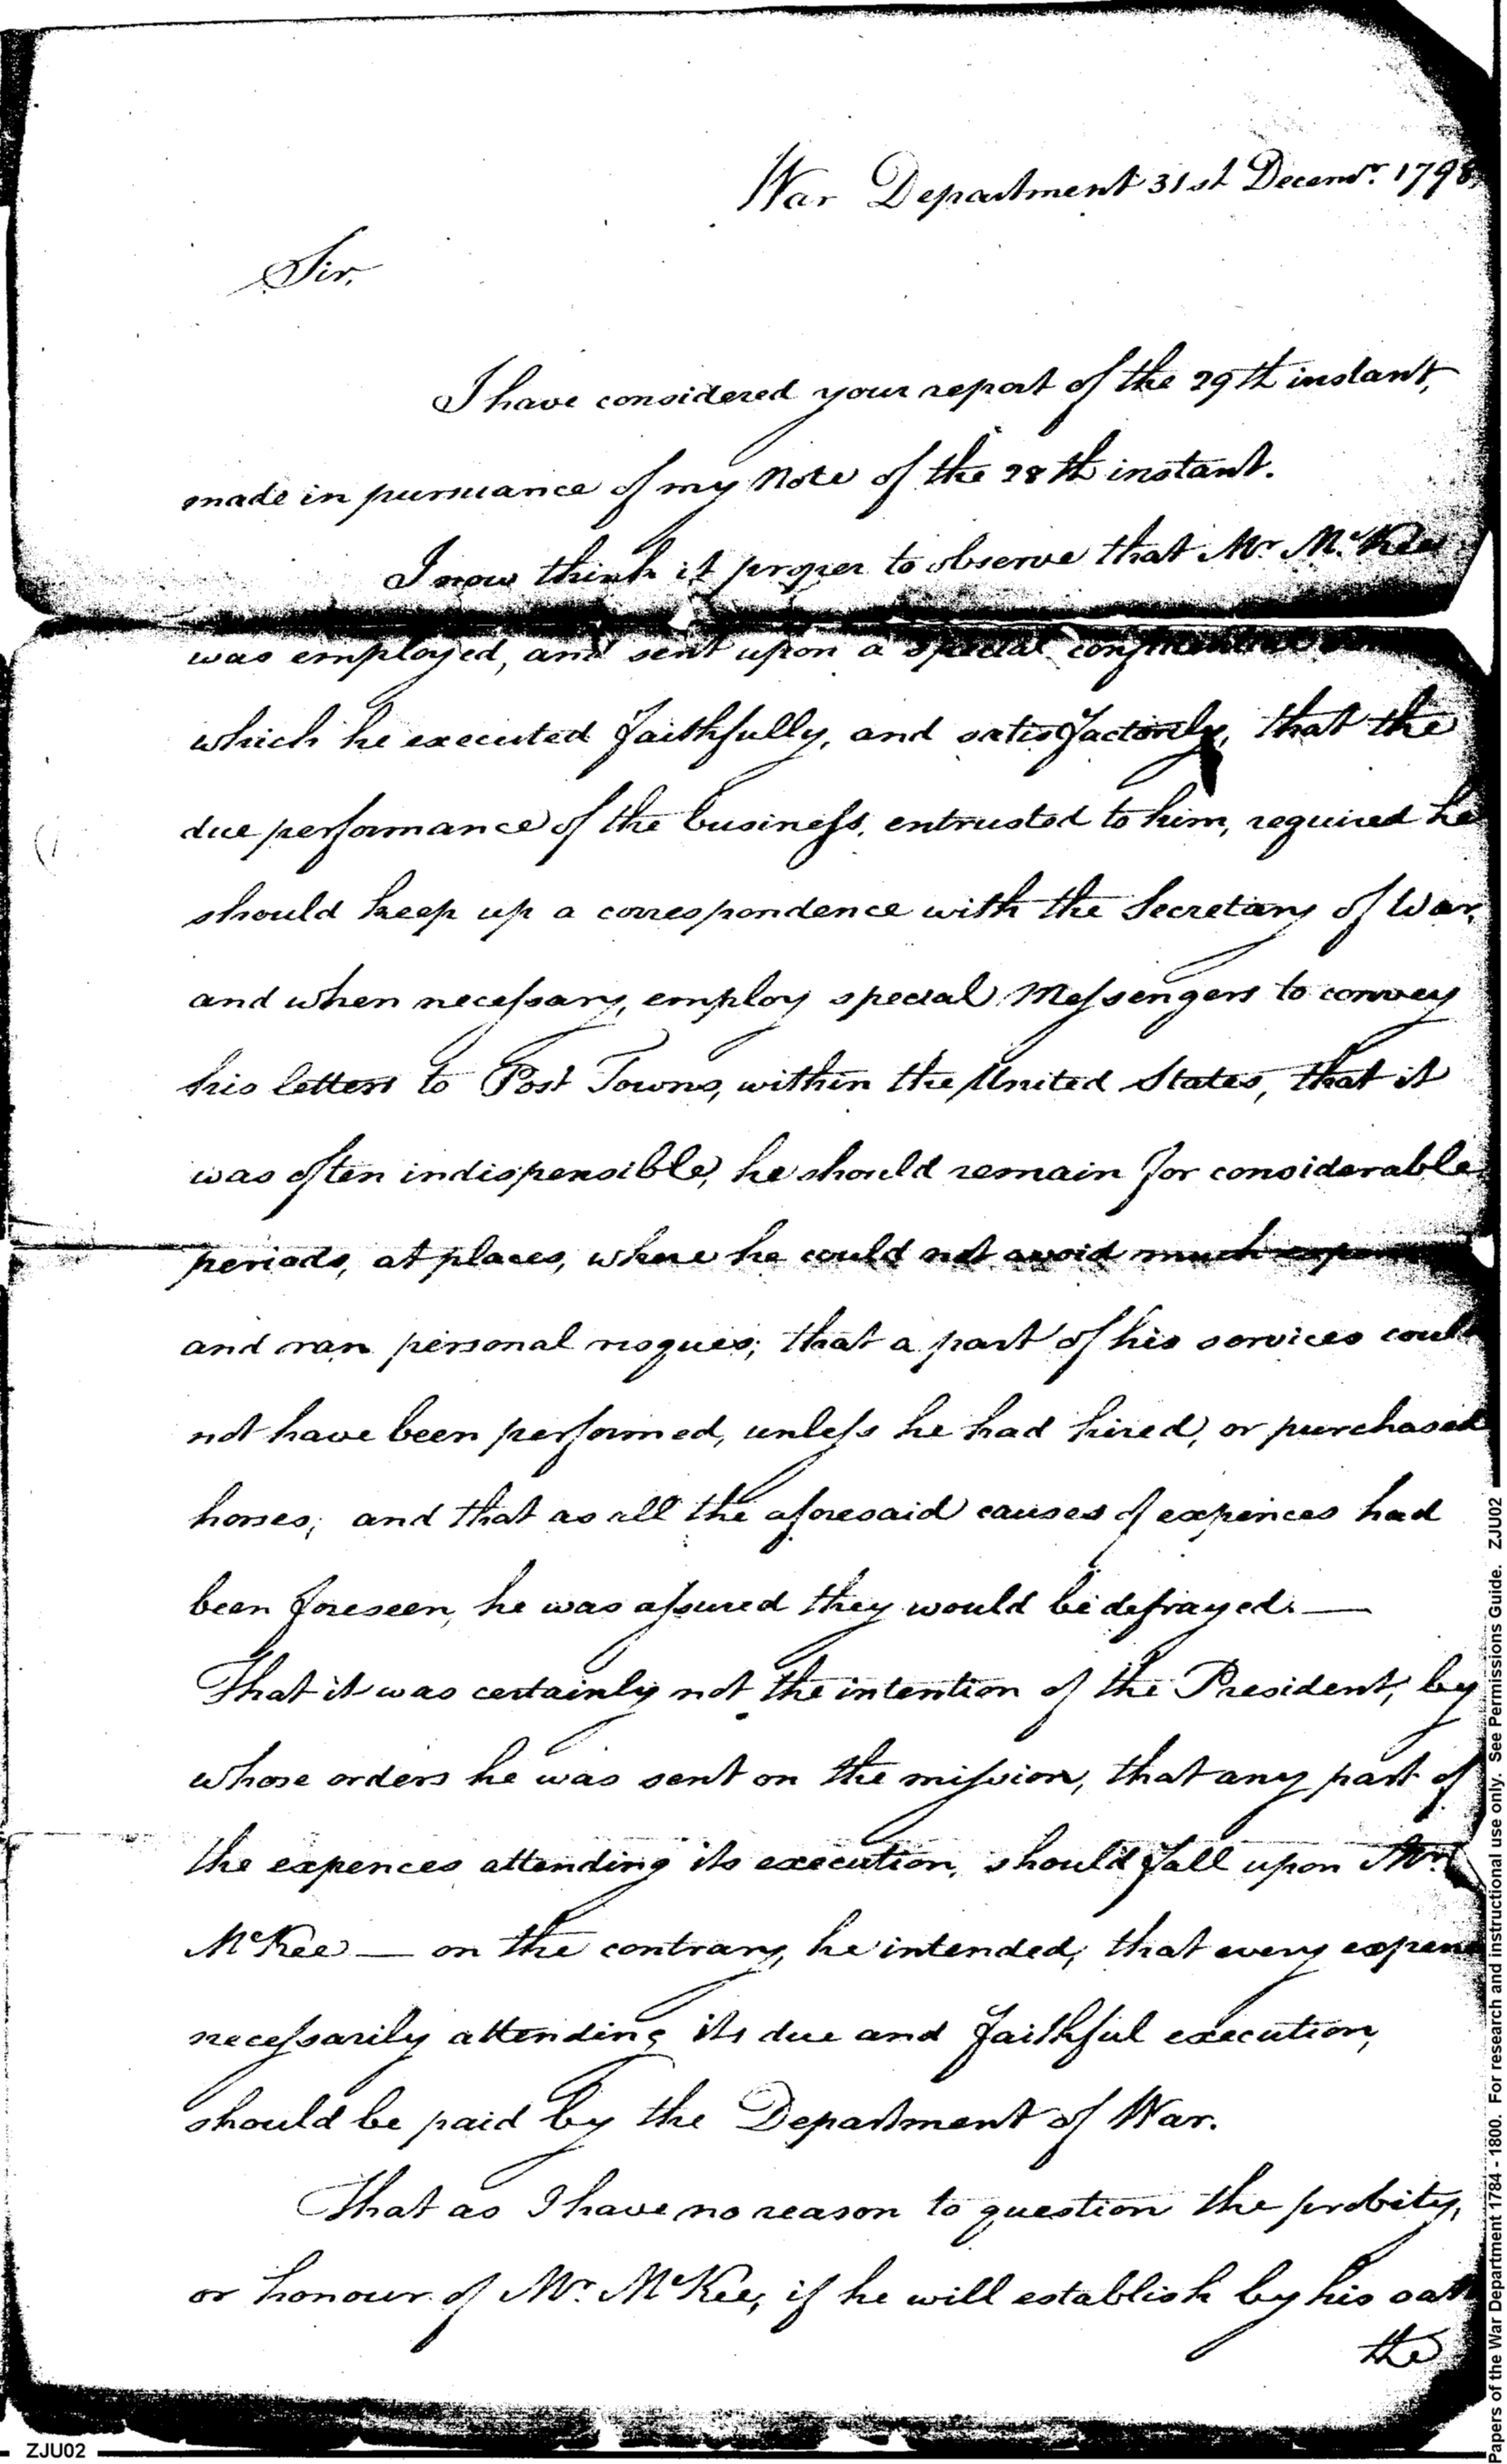 War Department 31st Decemr. 1798
Sir,
I have considered your report of the 29th instant,
made in pursuance of my Note of the 28th instant.
I now think it proper to observe that Mr McKee
was employed, and sent upon a special
which he executed faithfully, and satisfactorily, that the
due performance of the business, entrusted to him, required he
should keep up a correspondence with the Secretary of War,
and when necessary, employ special Messengers to convey
his letters to Post Towns, within the United States, that it
was often indispensible, he should remain for considerable
periods, at places, where he could not avoid much
and ran personal risques; that a part of his services could
not have been performed, unless he had hired, or purchased
horses; and that as all the aforesaid causes of expences had
been foreseen, he was assured they would be defrayed. —
That it was certainly not the intention of the President, by
whose orders he was sent on the mission, that any part of
the expences attending its execution, should fall upon Mr.
McKee — on the contrary, he intended, that every
necessarily attending its due and faithful execution,
should be paid by the Department of War.
That as I have no reason to question the probity,
or honour of Mr. McKee, if he will establish by his oath
the
ZJU02
Papers of the War Department 1784 - 1800. For research and instructional use only. See Permissions Guide. ZJU02